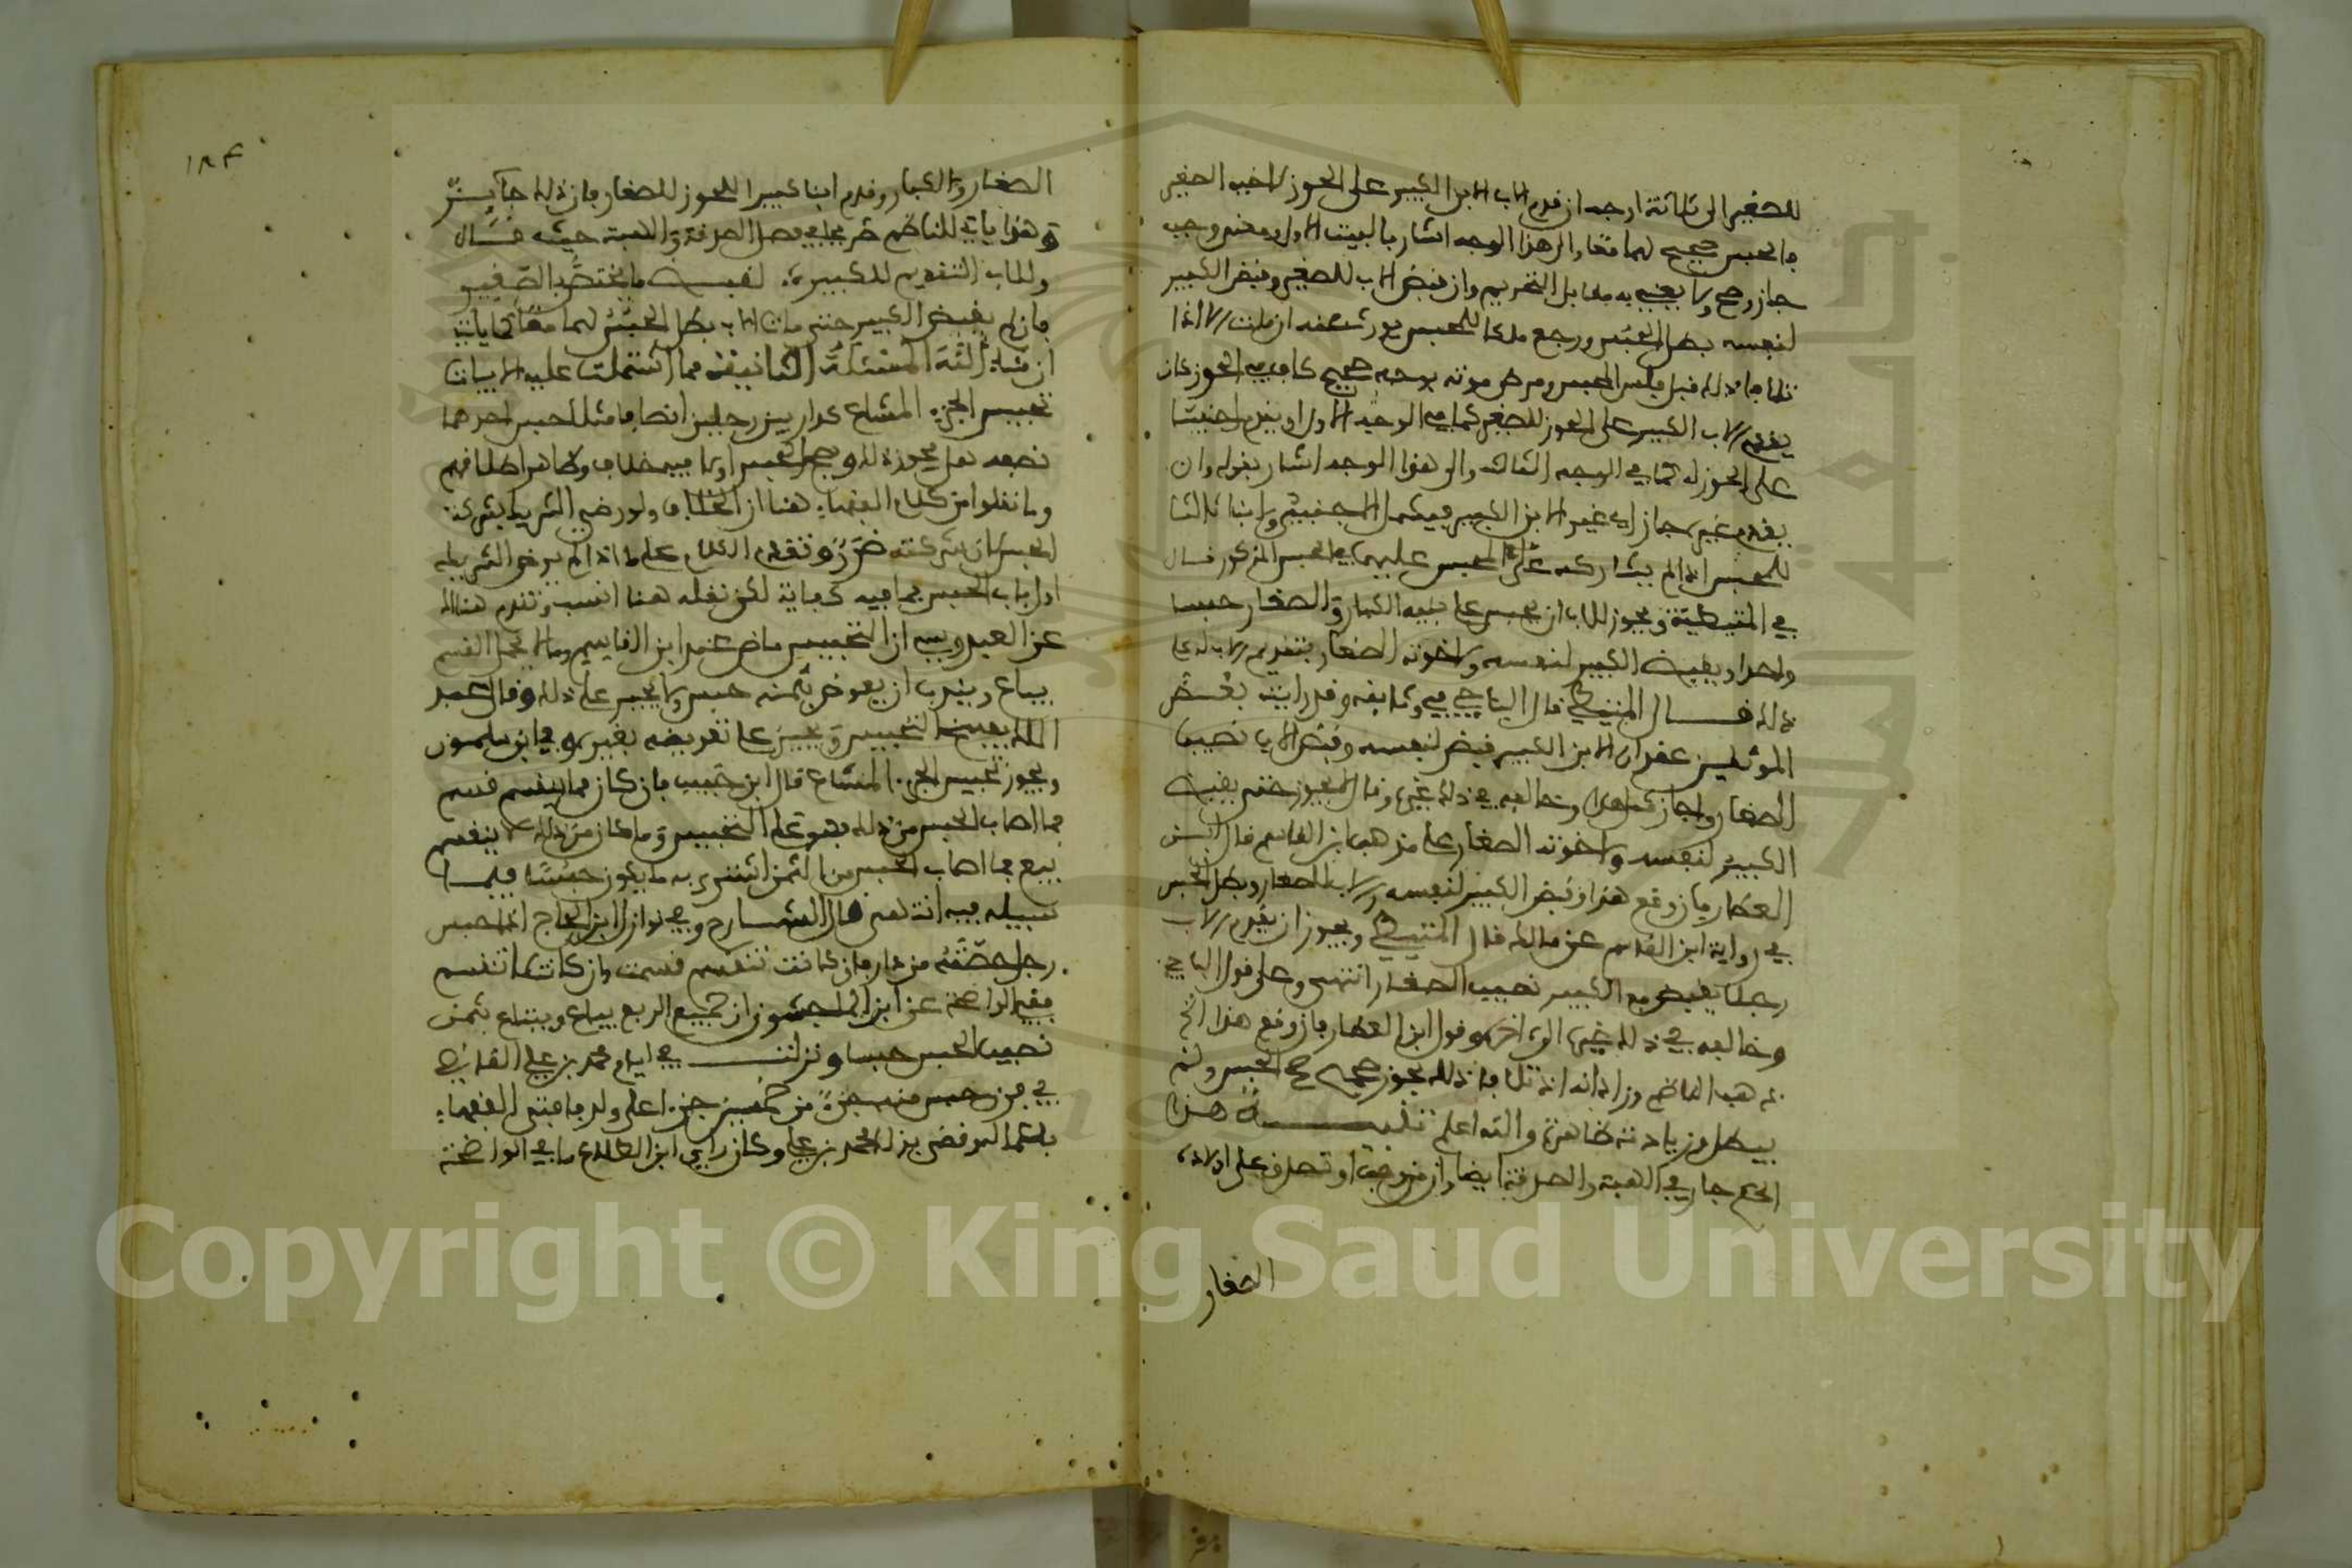 للصغير الى ثلاثة اوجه ان قدم الاب الابن الكبير على الحوز لاخيه الصغير
فالحبس صحيح لهما معا والى هذا الوجه اشار بالبيت الاول ومعنى وجب
جاز وصح ولا يعني به مقابل التحريم وان قبض الاب للصغير وقبض الكبير
لنفسه بطل الحبس ورجع ملكا للمحبس يورث عنه ان مات الا اذا
تلافا ذلك قبل فلس المحبس ومرض موته بوجه صحيح كاف في الحوز كان
يقدم الاب الكبير على الحوز للصغير كما في الوجه الاول او يقدم اجنبيا
على الحوز له كما في الوجه الثالث والى هذا الوجه اشار بقوله وان
يقدم غيره جاز اي غير الابن الكبير فيشمل الاجنبي وابنا ثالثا
للمحبس اذا لم يشاركه المحبس عليهما في الحبس المذكور قال
في المتيطية ويجوز للاب ان يحبس على بنيه الكبار والصغار حبسا
واحدا ويقبض الكبير لنفسه ولاخوته الصغار بتقديم الاب له على
ذلك قال المتيطي قال الباجي في وثايقه وقد رايت بعض
الموثقين عقد ان الابن الكبير قبض لنفسه وقبض الاب نصيب
الصغار واجاز كما هذا وخالفه في ذلك غيره وقال لا يجوز حتى يقبض
الكبير لنفسه ولاخوته الصغار على مذهب ابن القاسم قال ابن
العطار فان وقع هذا وقبض الكبير لنفسه والاب للصغار وبطل الحبس
في رواية ابن القاسم عن مالك قال المتيطي ويجوز ان يقدم الاب
رجلا يقبض مع الكبير نصيب الصغار انتهى وعلى قول الباجي
وخالفه في ذلك غيره الى اخره وقول ابن العطار فان وقع هذا الخ
ذهب الناظم وزاد انه اذا تلافا ذلك بحوز صحيح صح الحبس ولم
يبطل وزيادته ظاهرة والله اعلم تنبيه هذا
الحكم جار في الهبة والصدقة ايضا وان من وهب او تصدق على اولاده
الصغار
١٨٣
الصغار والكبار وقدم ابنا كبيرا للحوز للصغار فان ذلك جايز
وهذا ياتي للناظم في فصل الصدقة والهبة حيث قال
وللاب التقديم للكبير لقبض ما يختص بالصغير
فان لم يقبض الكبير حتى مات الاب بطل الحبس لهما معا كما ياتي
ان شاء الله المسئلة الثانية مما اشتملت عليه الابيات
تحبيس الجزء المشاع كدار بين رجلين انصافا مثلا حبس احدهما
نصفه هل يجوز ذلك ويصح الحبس او لا فيه خلاف وظاهر اطلاقهم
وما نقلوا من كلام الفقهاء هنا ان الخلاف ولو رضي الشريك بشركة
الحبس لان شركته ضرر وتقدم الكلام على ما اذا لم يرض الشريك
اول باب الحبس بما فيه كفاية لكن نقله هنا انسب وتقدم هناك
عن العبدوسي ان التحبيس ماض عند ابن القاسم وما لا يحمل القسم
يباع ويندب ان يعوض بثمنه حبس ولا يجبر على ذلك وقال عبد
الملك يفسخ التحبيس ويجبر على تعويضه بغيره وفي ابن سلمون
ويجوز تحبيس الجزء المشاع قال ابن حبيب فان كان مما ينقسم قسم
فما اصاب الحبس من ذلك فهو على التحبيس وما كان من ذلك لا ينقسم
بيع فما اصاب الحبس من الثمن اشترى به ما يكون حبسا فيما
سبيله فيه انتهى قال الشارح وفي نوازل ابن الحاج اذا حبس
رجل حصته من دار فان كانت تنقسم قسمت وان كانت لا تنقسم
ففي الواضحة عن ابن الماجشون ان جميع الربع يباع ويبتاع بثمن
نصيب الحبس حبسا ونزلت في ايام محمد بن علي القاضي
في من حبس جزءا من كفين جزءا على ولد فافتى الفقهاء
باعمال وقضى بذلك محمد بن علي وكان راي ابن الطلاع ما في الواضحة